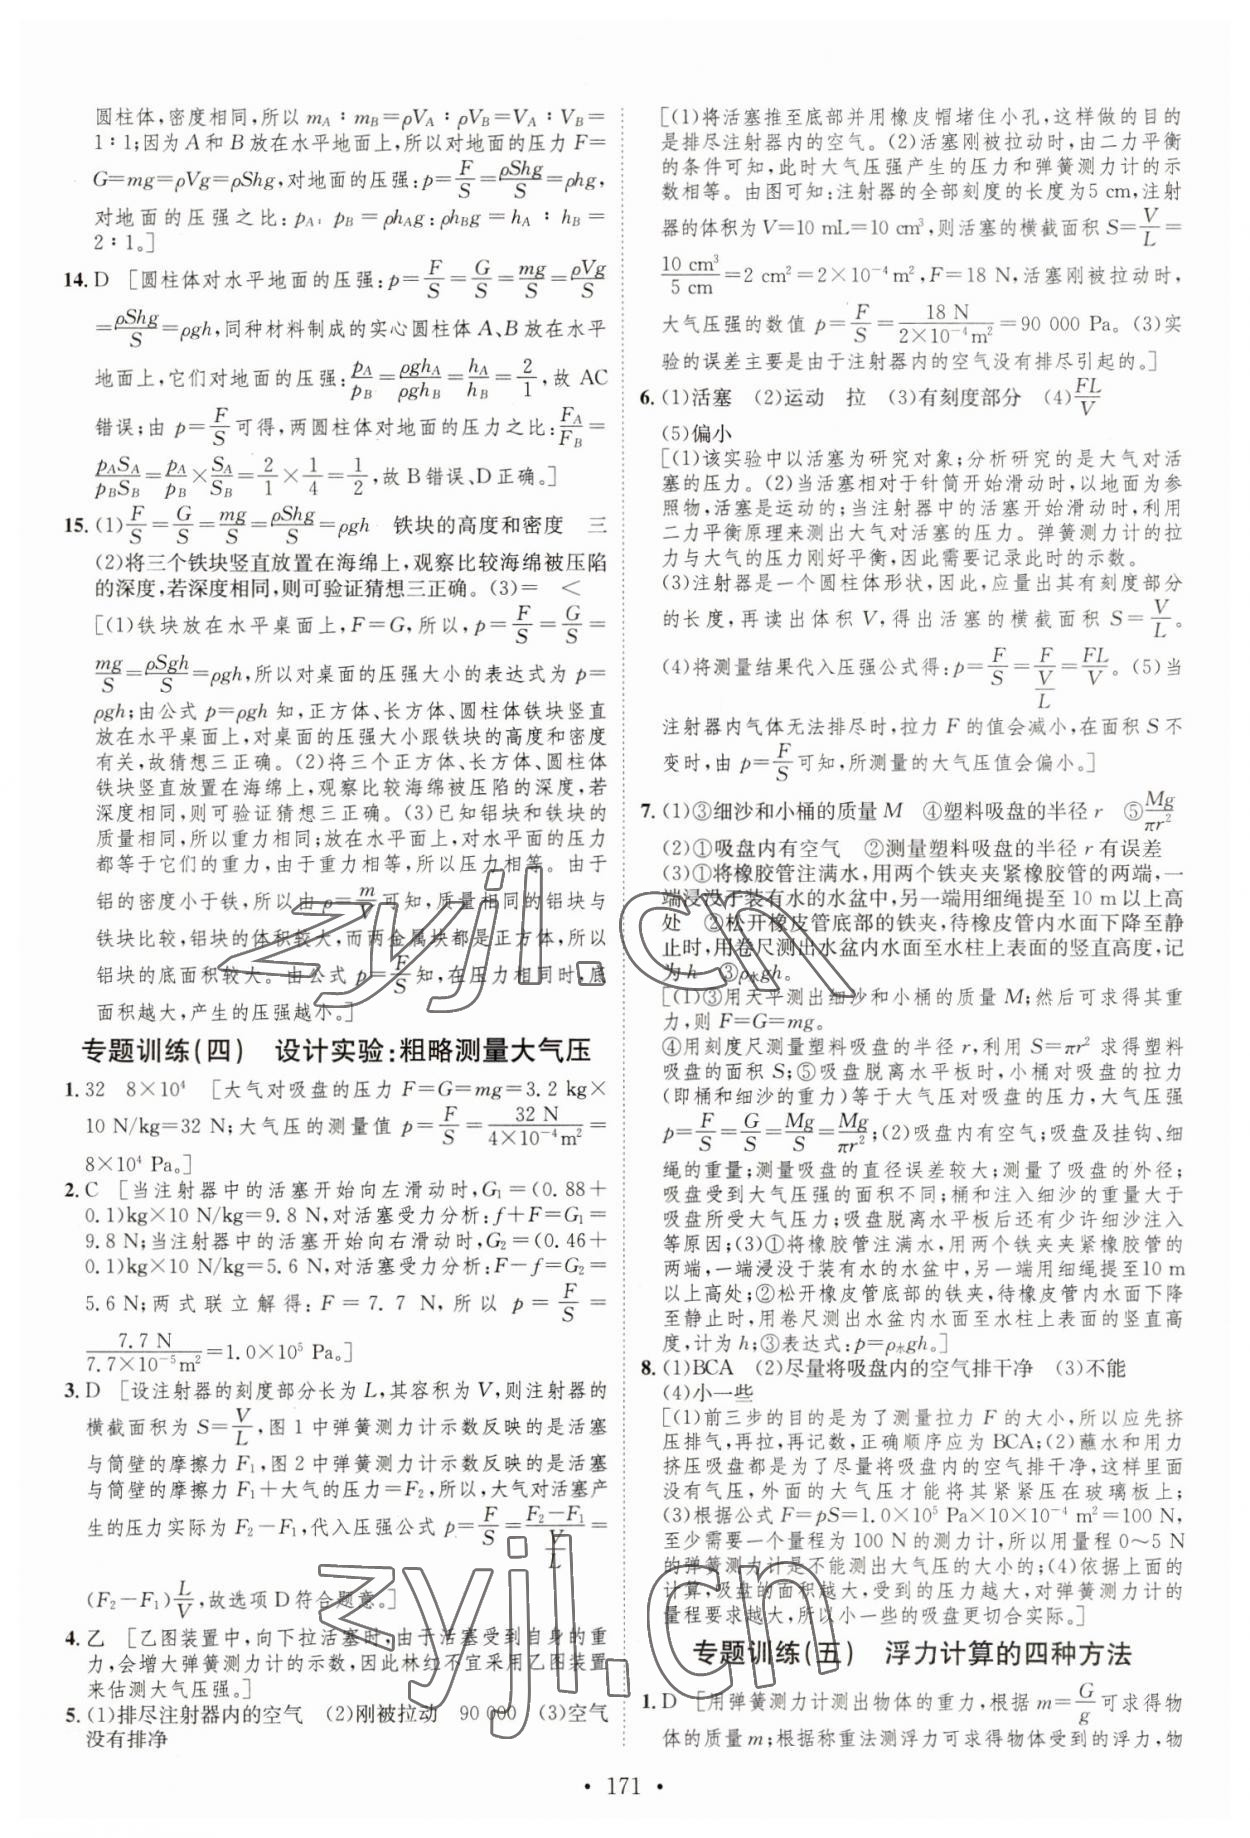 圆柱体,密度相同,所以 mA∶mB=ρVA∶ρVB=VA∶VB=
1∶1;因为 A 和 B 放在水平地面上,所以对地面的压力 F=
G=mg=ρVg=ρShg,对地面的压强:p=F/S=ρShg/S=ρhg,
对地面的压强之比:pA:pB=ρhAg:ρhBg=hA∶hB=
2∶1。]
14. D [圆柱体对水平地面的压强:p=F/S=G/S=mg/S=ρVg/S
=ρShg/S=ρgh,同种材料制成的实心圆柱体 A、B 放在水平
地面上,它们对地面的压强:pA/pB=ρghA/ρghB=hA/hB=2/1,故 AC
错误;由 p=F/S可得,两圆柱体对地面的压力之比:FA/FB=
pASA/pBSB=pA/pB×SA/SB=2/1×1/4=1/2,故 B 错误、D 正确。]
15. (1)F/S=G/S=mg/S=ρShg/S=ρgh 铁块的高度和密度 三
(2)将三个铁块竖直放置在海绵上,观察比较海绵被压陷
的深度,若深度相同,则可验证猜想三正确。(3)= <
[(1)铁块放在水平桌面上,F=G,所以,p=F/S=G/S=
mg/S=ρSgh/S=ρgh,所以对桌面的压强大小的表达式为 p=
ρgh;由公式 p=ρgh 知,正方体、长方体、圆柱体铁块竖直
放在水平桌面上,对桌面的压强大小跟铁块的高度和密度
有关,故猜想三正确。(2)将三个正方体、长方体、圆柱体
铁块竖直放置在海绵上,观察比较海绵被压陷的深度,若
深度相同,则可验证猜想三正确。(3)已知铝块和铁块的
质量相同,所以重力相同;放在水平面上,对水平面的压力
都等于它们的重力,由于重力相等,所以压力相等。由于
铝的密度小于铁,所以由 ρ=m/V可知,质量相同的铝块与
铁块比较,铝块的体积较大,而两金属块都是正方体,所以
铝块的底面积较大。由公式 p=F/S知,在压力相同时,底
面积越大,产生的压强越小。]
专题训练(四) 设计实验:粗略测量大气压
1. 32 8×10⁴ [大气对吸盘的压力 F=G=mg=3.2 kg×
10 N/kg=32 N;大气压的测量值 p=F/S=32 N/4×10⁻⁴m²=
8×10⁴ Pa。]
2. C [当注射器中的活塞开始向左滑动时,G₁=(0.88+
0.1)kg×10 N/kg=9.8 N,对活塞受力分析:f+F=G₁=
9.8 N;当注射器中的活塞开始向右滑动时,G₂=(0.46+
0.1)kg×10 N/kg=5.6 N,对活塞受力分析:F-f=G₂=
5.6 N;两式联立解得:F=7.7 N,所以 p=F/S=
7.7 N/7.7×10⁻⁵m²=1.0×10⁵ Pa。]
3. D [设注射器的刻度部分长为 L,其容积为 V,则注射器的
横截面积为 S=V/L,图 1 中弹簧测力计示数反映的是活塞
与筒壁的摩擦力 F₁,图 2 中弹簧测力计示数反映的是活塞
与筒壁的摩擦力 F₁+大气的压力=F₂,所以,大气对活塞产
生的压力实际为 F₂-F₁,代入压强公式 p=F/S=(F₂-F₁)/(V/L)=
(F₂-F₁)L/V,故选项 D 符合题意。]
4. 乙 [乙图装置中,向下拉活塞时,由于活塞受到自身的重
力,会增大弹簧测力计的示数,因此林红不宜采用乙图装置
来估测大气压强。]
5. (1)排尽注射器内的空气 (2)刚被拉动 90 000 (3)空气
没有排净
[(1)将活塞推至底部并用橡皮帽堵住小孔,这样做的目的
是排尽注射器内的空气。(2)活塞刚被拉动时,由二力平衡
的条件可知,此时大气压强产生的压力和弹簧测力计的示
数相等。由图可知:注射器的全部刻度的长度为5 cm,注射
器的体积为 V=10 mL=10 cm³,则活塞的横截面积 S=V/L=
10 cm³/5 cm=2 cm²=2×10⁻⁴m²,F=18 N,活塞刚被拉动时,
大气压强的数值 p=F/S=18 N/2×10⁻⁴m²=90 000 Pa。(3)实
验的误差主要是由于注射器内的空气没有排尽引起的。]
6. (1)活塞 (2)运动 拉 (3)有刻度部分 (4)FL/V
(5)偏小
[(1)该实验中以活塞为研究对象;分析研究的是大气对活
塞的压力。(2)当活塞相对于针筒开始滑动时,以地面为参
照物,活塞是运动的;当注射器中的活塞开始滑动时,利用
二力平衡原理来测出大气对活塞的压力。弹簧测力计的拉
力与大气的压力刚好平衡,因此需要记录此时的示数。
(3)注射器是一个圆柱体形状,因此,应量出其有刻度部分
的长度,再读出体积 V,得出活塞的横截面积 S=V/L。
(4)将测量结果代入压强公式得:p=F/S=F/(V/L)=FL/V。(5)当
注射器内气体无法排尽时,拉力 F 的值会减小,在面积 S 不
变时,由 p=F/S可知,所测量的大气压值会偏小。]
7. (1)③细沙和小桶的质量 M ④塑料吸盘的半径 r ⑤Mg/πr²
(2)①吸盘内有空气 ②测量塑料吸盘的半径 r 有误差
(3)①将橡胶管注满水,用两个铁夹夹紧橡胶管的两端,一
端浸没于装有水的水盆中,另一端用细绳提至 10 m 以上高
处 ②松开橡皮管底部的铁夹,待橡皮管内水面下降至静
止时,用卷尺测出水盆内水面至水柱上表面的竖直高度,记
为 h ③ρ水gh。
[(1)③用天平测出细沙和小桶的质量 M;然后可求得其重
力,则 F=G=mg。
④用刻度尺测量出塑料吸盘的半径 r,利用 S=πr²求得塑料
吸盘的面积 S;⑤吸盘脱离水平板时,小桶对吸盘的拉力
(即桶和细沙的重力)等于大气压对吸盘的压力,大气压强
p=F/S=G/S=Mg/S=Mg/πr²;(2)吸盘内有空气;吸盘及挂钩、细
绳的重量;测量吸盘的直径误差较大;测量了吸盘的外径;
吸盘受到大气压强的面积不同;桶和注入细沙的重量大于
吸盘所受大气压力;吸盘脱离水平板后还有少许细沙注入
等原因;(3)①将橡胶管注满水,用两个铁夹夹紧橡胶管的
两端,一端浸没于装有水的水盆中,另一端用细绳提至10 m
以上高处;②松开橡皮管底部的铁夹,待橡皮管内水面下降
至静止时,用卷尺测出水盆内水面至水柱上表面的竖直高
度,计为 h;③表达式:p=ρ水gh。]
8. (1)BCA (2)尽量将吸盘内的空气排干净 (3)不能
(4)小一些
[(1)前三步的目的是为了测量拉力 F 的大小,所以应先挤
压排气,再拉,再记数,正确顺序应为 BCA;(2)蘸水和用力
挤压吸盘都是为了尽量将吸盘内的空气排干净,这样里面
没有气压,外面的大气压力才能将其紧紧压在玻璃板上;
(3)根据公式 F=pS=1.0×10⁵ Pa×10×10⁻⁴ m²=100 N,
至少需要一个量程为 100 N 的测力计,所以用量程 0～5 N
的弹簧测力计是不能测出大气压的大小的;(4)依据上面的
计算,吸盘的面积越大,受到的压力越大,对弹簧测力计的
量程要求越大,所以小一些的吸盘更切合实际。]
专题训练(五) 浮力计算的四种方法
1. D [用弹簧测力计测出物体的重力,根据 m=G/g可求得物
体的质量 m;根据称重法测浮力可求得物体受到的浮力,物
• 171 •
zyjl.cn
zyjl.cn